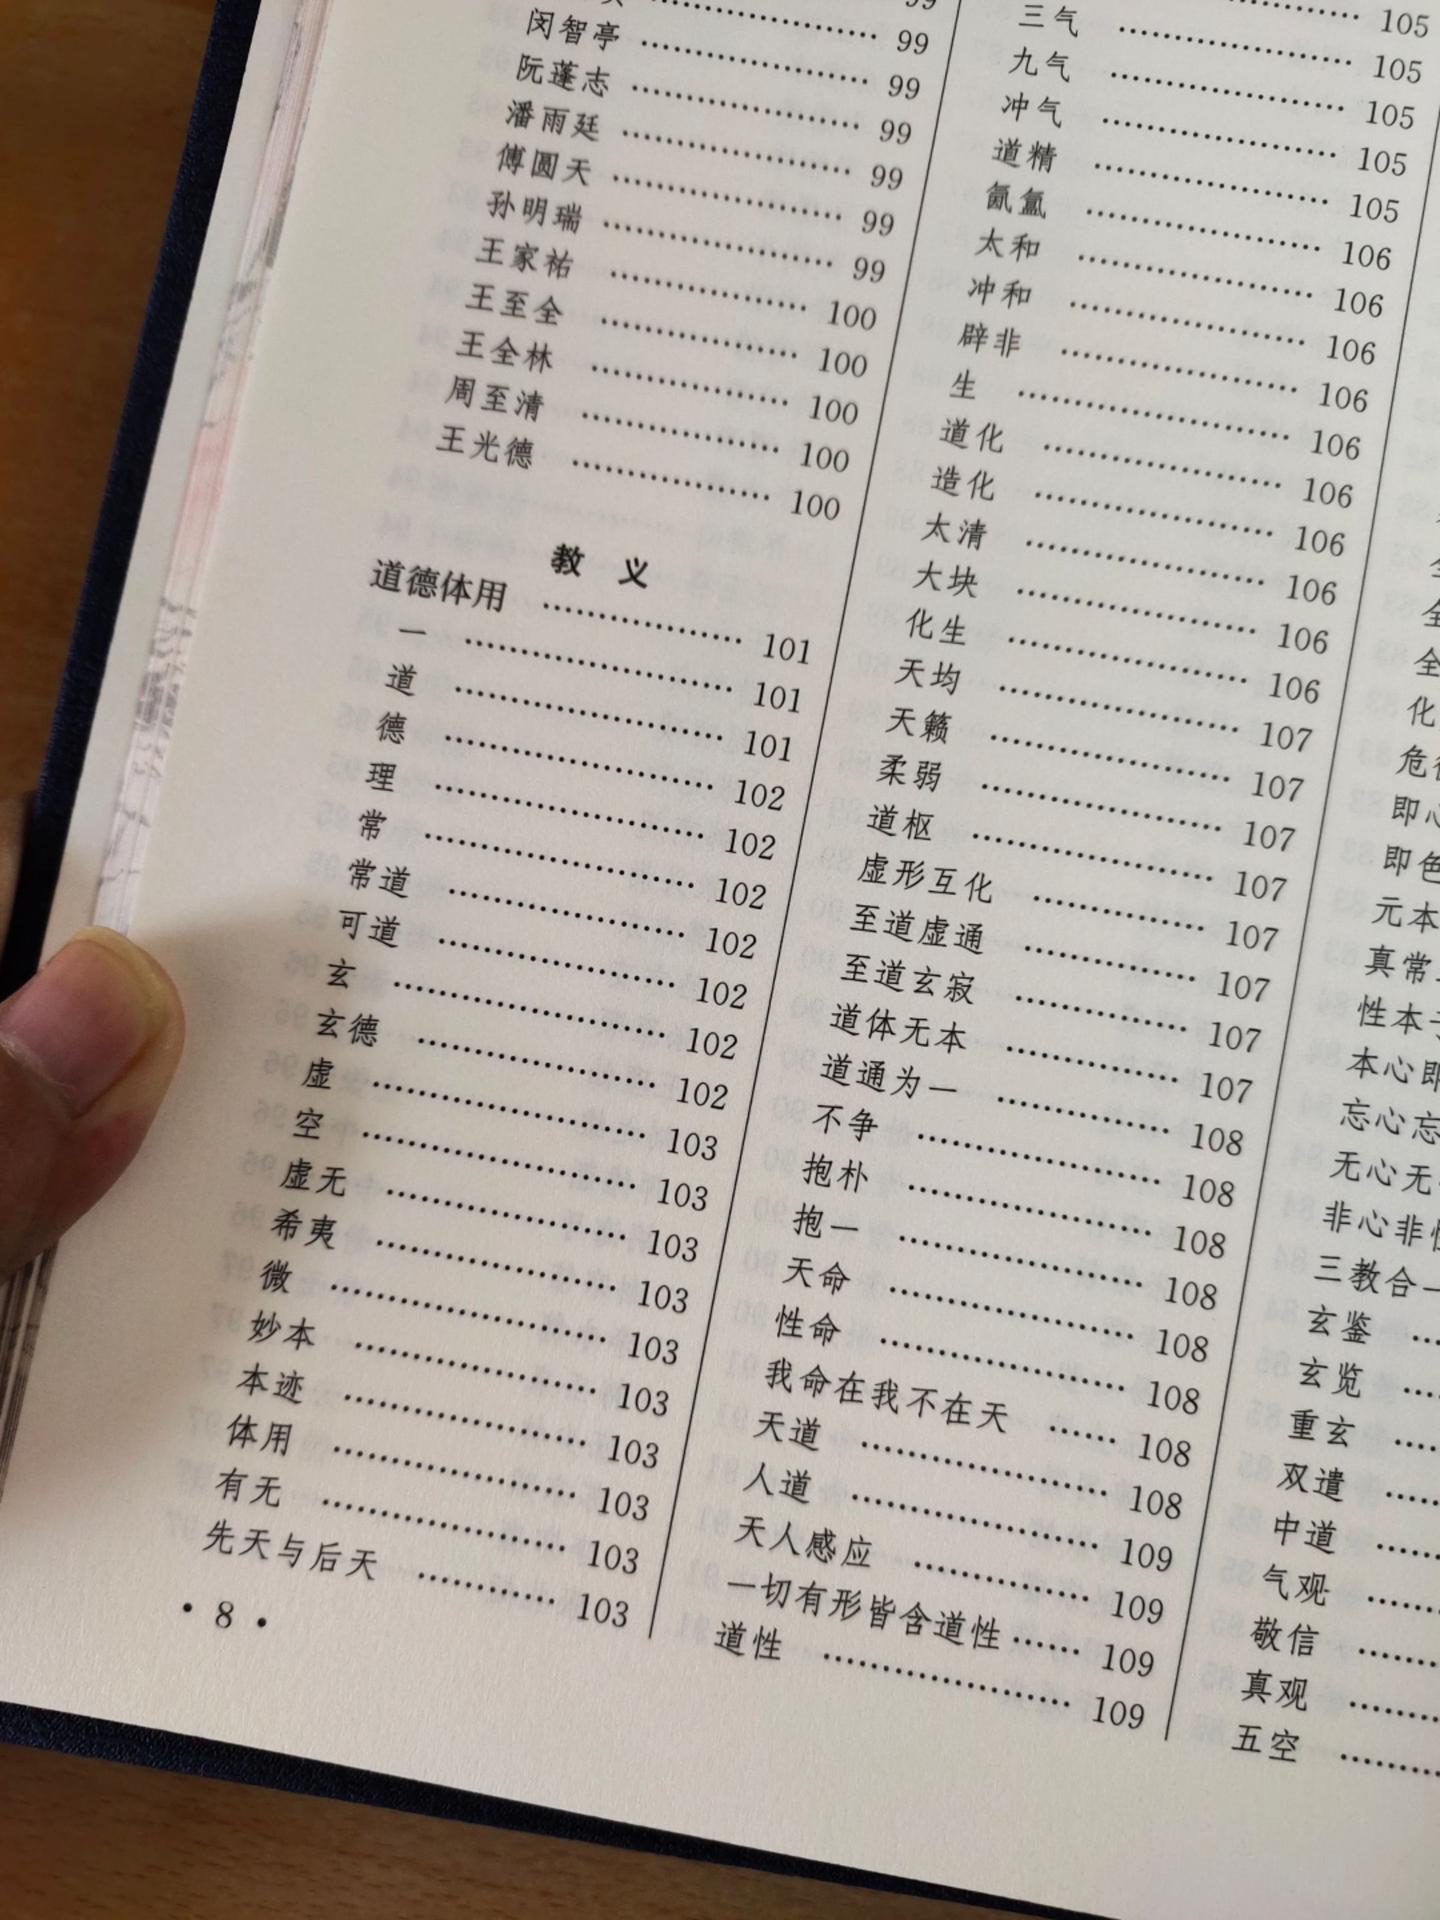 99
99
闵智亭 …… 99
阮蓬志 …… 99
潘雨廷 …… 99
傅圆天 …… 99
孙明瑞 …… 99
王家祐 …… 100
王至全 …… 100
王全林 …… 100
周至清 …… 100
王光德 …… 100
教 义
道德体用 …… 101
一 …… 101
道 …… 101
德 …… 102
理 …… 102
常 …… 102
常道 …… 102
可道 …… 102
玄 …… 102
玄德 …… 102
虚 …… 103
空 …… 103
虚无 …… 103
希夷 …… 103
微 …… 103
妙本 …… 103
本迹 …… 103
体用 …… 103
有无 …… 103
先天与后天 …… 103
· 8 ·
105
三气 …… 105
九气 …… 105
冲气 …… 105
道精 …… 105
氤氲 …… 106
太和 …… 106
冲和 …… 106
辟非 …… 106
生 …… 106
道化 …… 106
造化 …… 106
太清 …… 106
大块 …… 106
化生 …… 106
天均 …… 107
天籁 …… 107
柔弱 …… 107
道枢 …… 107
虚形互化 …… 107
至道虚通 …… 107
至道玄寂 …… 107
道体无本 …… 107
道通为一 …… 108
不争 …… 108
抱朴 …… 108
抱一 …… 108
天命 …… 108
性命 …… 108
我命在我不在天 …… 108
天道 …… 108
人道 …… 109
天人感应 …… 109
一切有形皆含道性 …… 109
道性 …… 109
全
全
化
危
即心
即色
元本
真常
性本
本心即
忘心忘
无心无
非心非
三教合一
玄鉴 ……
玄览 ……
重玄 ……
双遣 ……
中道 ……
气观 ……
敬信 ……
真观 ……
五空 ……